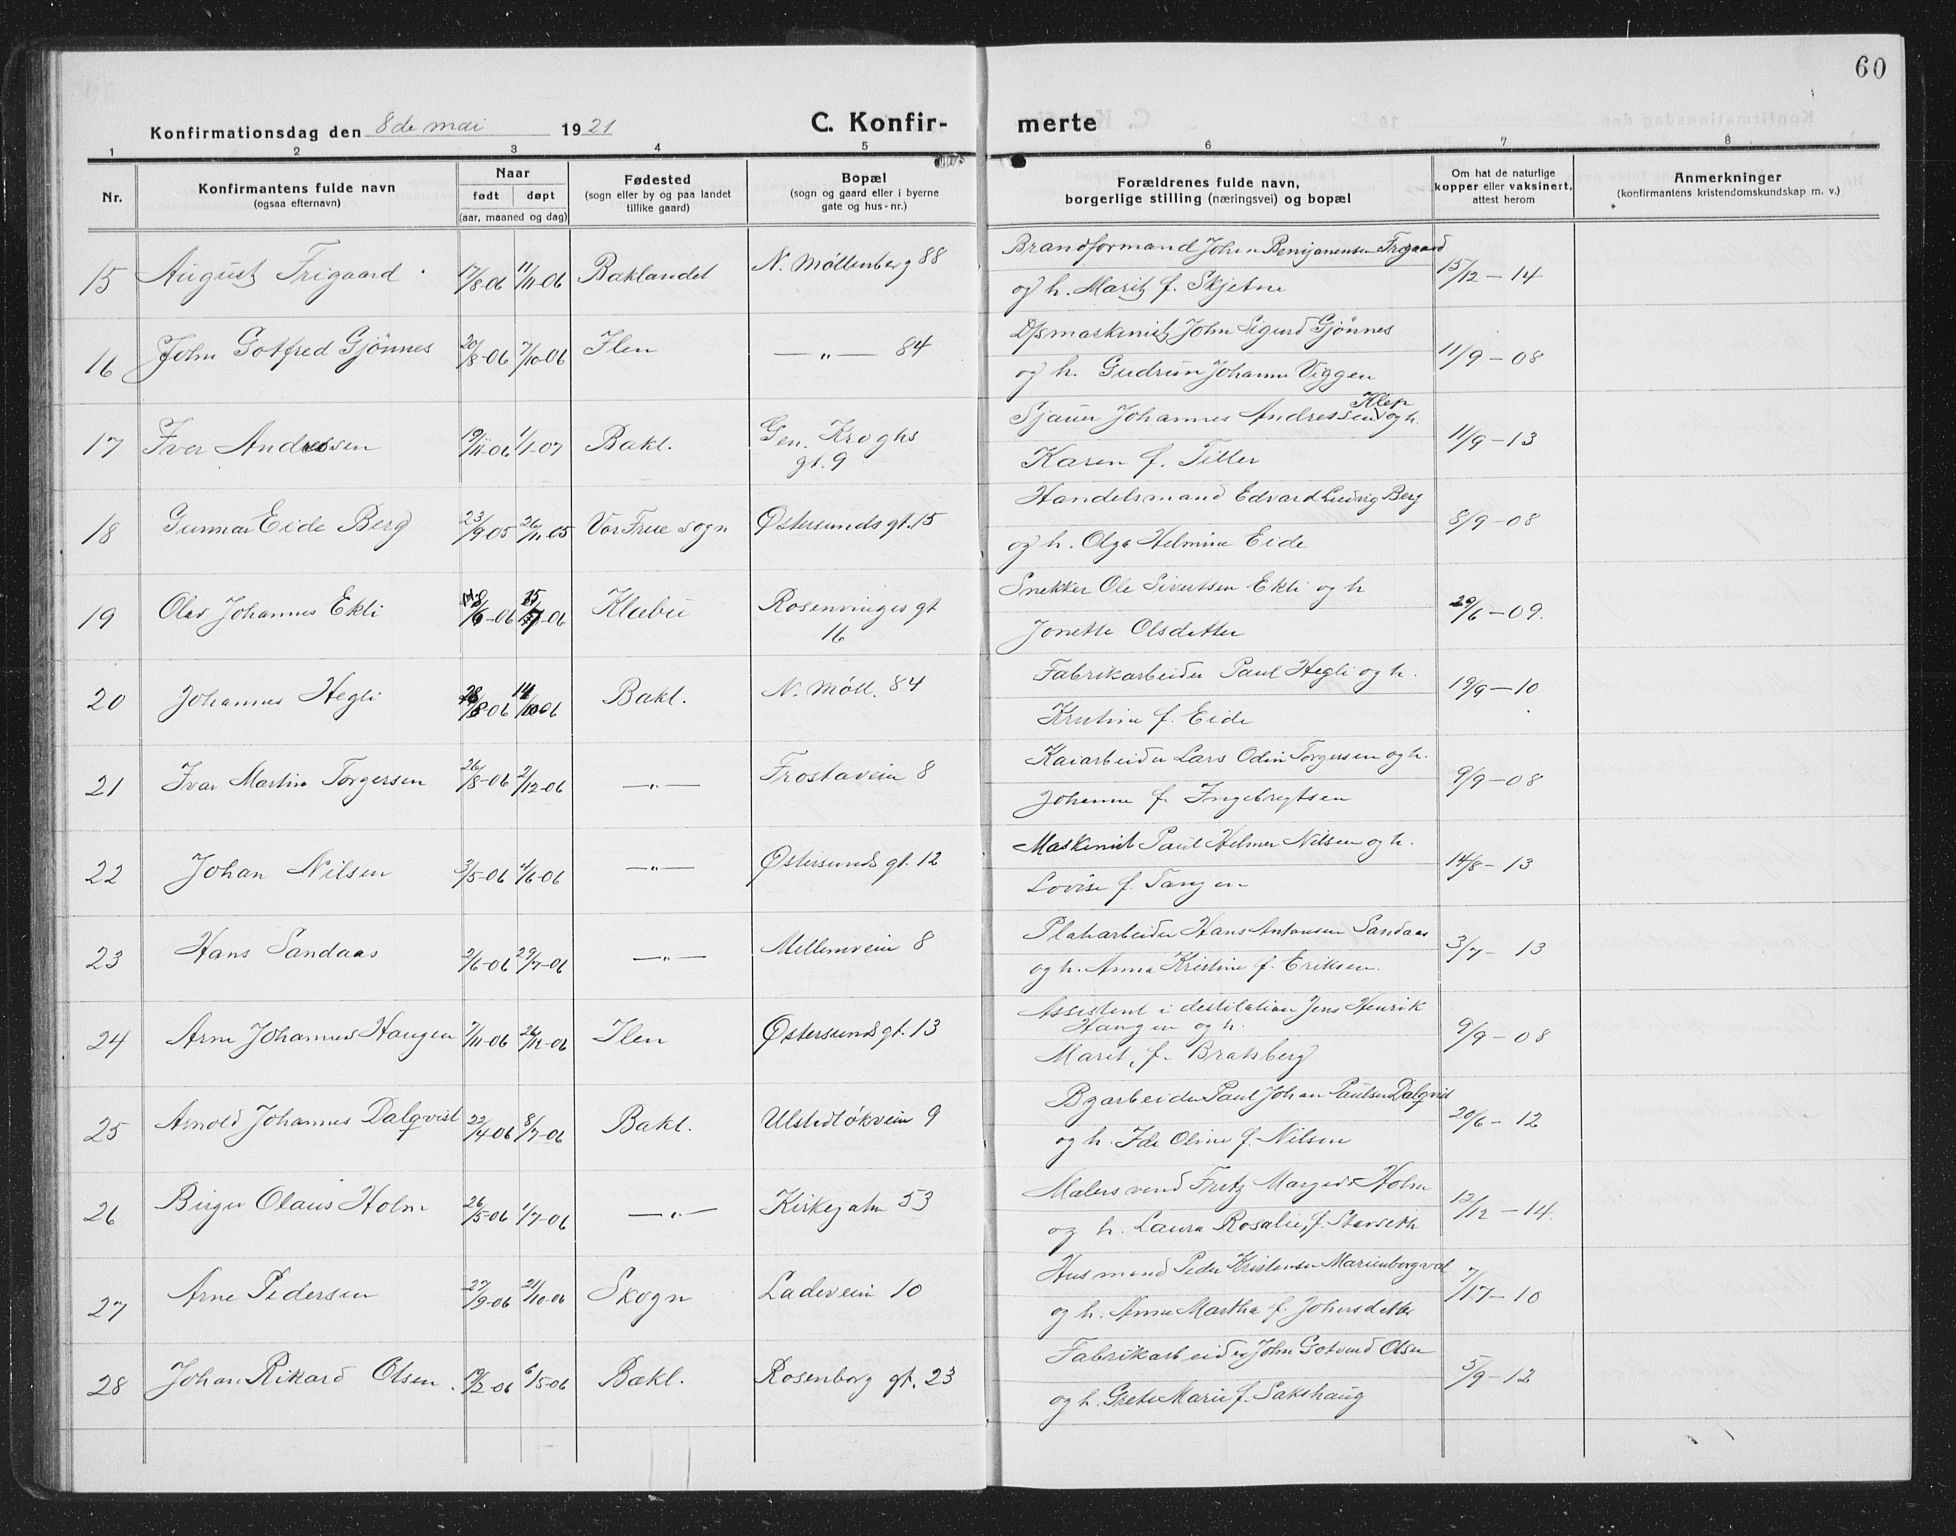 60
Konfirmationsdag den 8de mai 1921 C. Konfir- merte
1 2 3 4 5 6 7 8
Nr. Konfirmantens fulde navn (ogsaa efternavn)
Naar født døpt (aar, maaned og dag)
Fødested (sogn eller by og paa landet tillike gaard)
Bopæl (sogn og gaard eller i byerne gate og hus-nr.)
Forældrenes fulde navn, borgerlige stilling (næringsvei) og bopæl
Om hat de naturlige kopper eller vaksinert, attest herom
Anmerkninger (konfirmantens kristendomskundskap m. v.)
15 August Frigaard 17/8-06 11/11-06 Baklandet N. Möllenberg 88 Brandformand Johan Benjamensen Frigaard
og h. Marit f. Skjetne 15/12-14
16 John Gotfred Gjönnes 20/8-06 7/10-06 Ilen —"— 84 D/smaskinist John Sigurd Gjönnes
og h. Gudrun Johanne Viggen 11/9-08
17 Iver Andressen 19/11-06 1/1-07 Bakl. Gen. Kroghs gt. 9 Sjauer Johannes Andressen Klep og h.
Karen f. Tiller 11/9-13
18 Gunnar Eide Berg 23/9-05 26/11-05 Vor Frue sogn Østersunds gt. 15 Handelsmand Edvard Ludvig Berg
og h. Olga Helmine Eide 8/9-08
19 Olav Johannes Ekli /6-06 15/7-06 Klæbu Rosenvinges gt 16 Snekker Ole Sivertsen Ekli og h
Jonette Olsdatter 29/6-09.
20 Johannes Hegli 28/8-06 14/10-06 Bakl. N. Möll. 84 Fabrikarbeider Paul Hegli og h.
Kristine f. Eide 19/9-10
21 Ivar Martin Torgersen 26/8-06 2/12-06 —"— Frostaveien 8 Kaiarbeider Lars Odin Torgersen og h.
Johanne f. Ingebrigtsen 9/9-08
22 Johan Nilsen 3/5-06 4/6-06 —"— Østersunds gt. 12 Maskinist Paul Helmer Nilsen og h.
Lovise f. Tangen 14/8-13
23 Hans Sandaas 2/6-06 29/7-06 —"— Mellemveien 8 Platearbeider Hans Antonsen Sandaas
og h. Anna Kristine f. Eriksen. 3/7-13
24 Arne Johannes Haugen 7/11-06 26/12-06 Ilen Østersunds gt. 13 Assistent i destilation Jens Henrik
Haugen og h.
Marit, f. Bratsberg 9/9-08
25 Arnold Johannes Dalqvist 22/4-06 8/7-06 Bakl. Ulstadløkveien 9 Byarbeider Paul Johan Paulsen Dalqvist
og h. Ida Oline f. Nilsen 20/6-12
26 Birger Olaus Holm 26/5-06 1/7-06 —"— Kirkegaten 53 Malersvend Fritz Holm
og h. Laura Rosalie, f. Starseth 12/12-14.
27 Arne Pedersen 27/9-06 21/10-06 Skogn Ladeveien 10 Husmand Peder Kristensen Marienborgval
og h. Anne Martha f. Johansdatter 7/17-10
28 Johan Rikard Olsen 19/2-06 6/5-06 Bakl. Rosenborg gt. 23 Fabrikarbeider John Gotvard Olsen
og h. Grete Marie f. Sakshaug 5/9-12